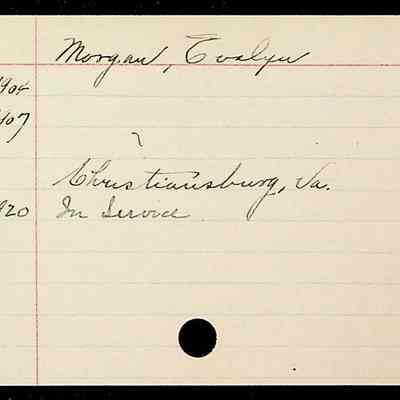 Morgan, Evelyn
1904
1907
Christiansburg, Va.
1920 In Service